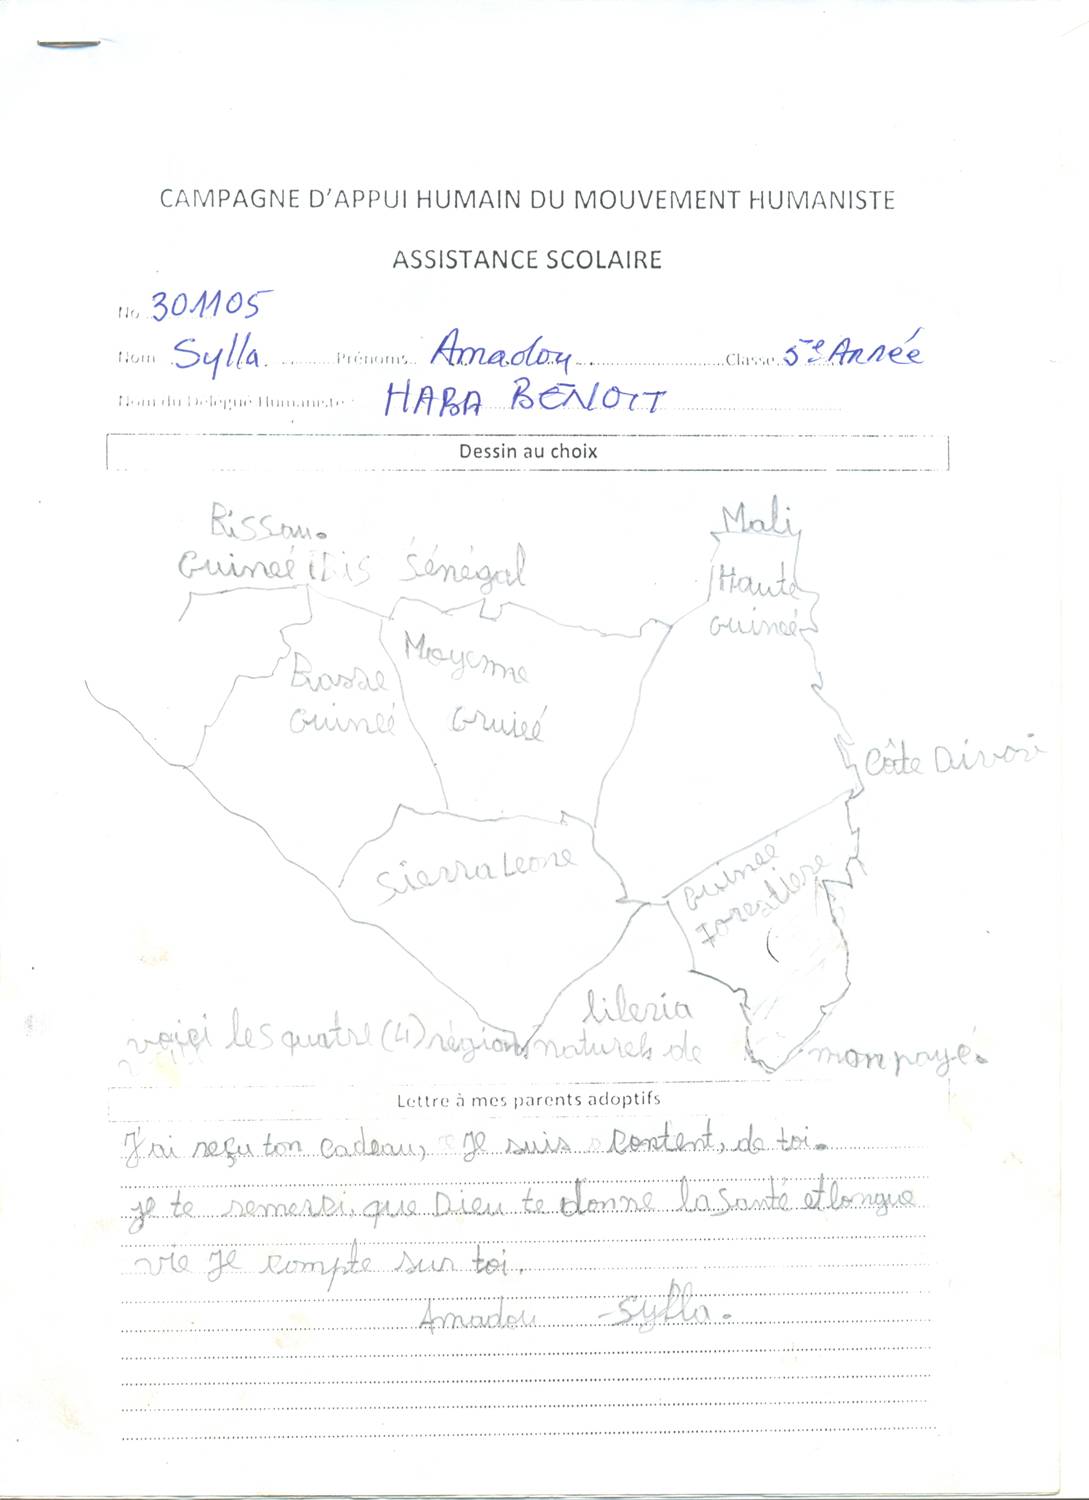 CAMPAGNE D'APPUI HUMAIN DU MOUVEMENT HUMANISTE
ASSISTANCE SCOLAIRE
No 301105
Nom Sylla Prénoms Amadou Classe 5e Année
Nom du Délégué Humaniste : HABA BENOIT
Dessin au choix
Bissau.
Guineé Sénégal
Mali
Haute
Guineé
Moyenne
Gruieé
Basse
Guineé
Côte Divoi
Sierra Leone
Guineé
Forestiere
liberia
voiçi les quatre (4) région naturels de mon payé.
Lettre à mes parents adoptifs
J'ai reçu ton cadeau, Je suis content, de toi.
je te remerci, que Dieu te donne la santé et longue
vie Je compte sur toi.
Amadou Sylla.